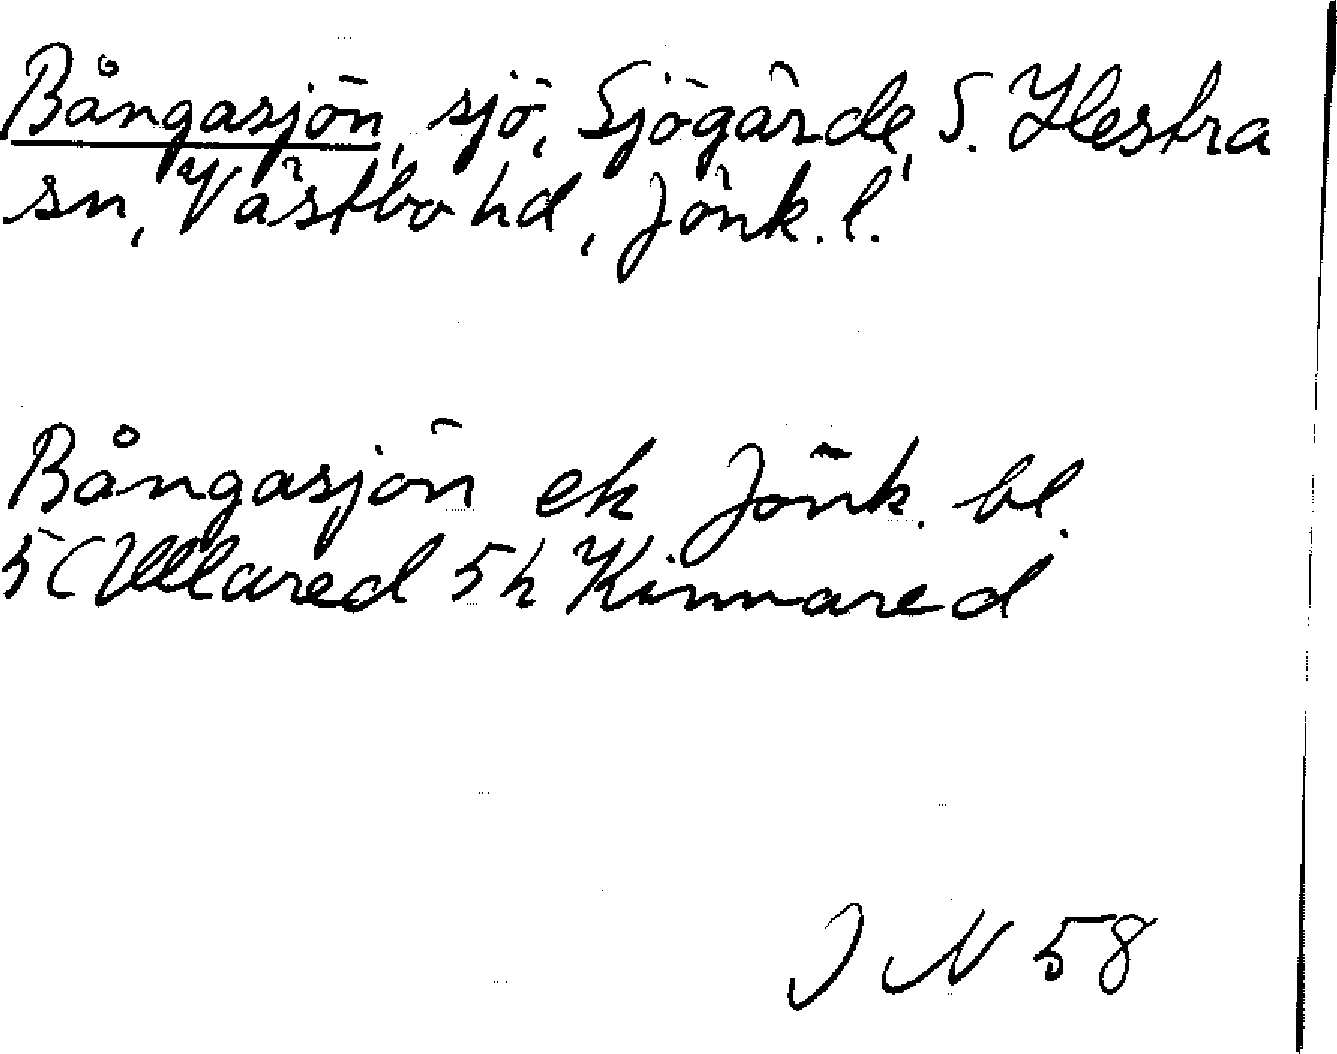 Bångasjön, sjö, Sjögärde, S. Hestra
sn, Västbo hd, Jönk. l.
Bångasjön ek Jönk. bl.
5 (Ullared 5h Kinnared
J N 58